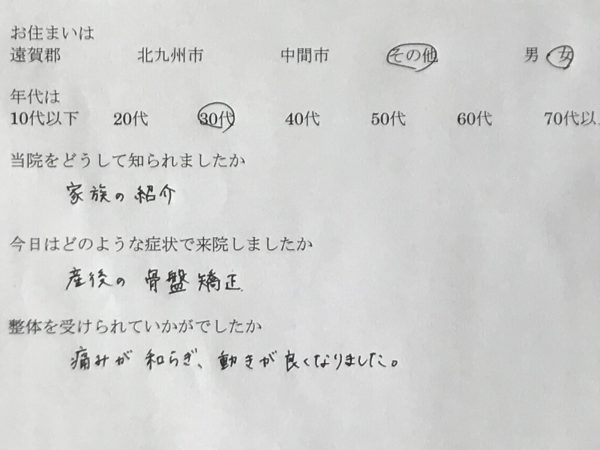 お住まいは
遠賀郡 北九州市 中間市 その他 男 女
年代は
10代以下 20代 30代 40代 50代 60代 70代以
当院をどうして知られましたか
家族の紹介
今日はどのような症状で来院しましたか
産後の骨盤矯正
整体を受けられていかがでしたか
痛みが和らぎ、動きが良くなりました。